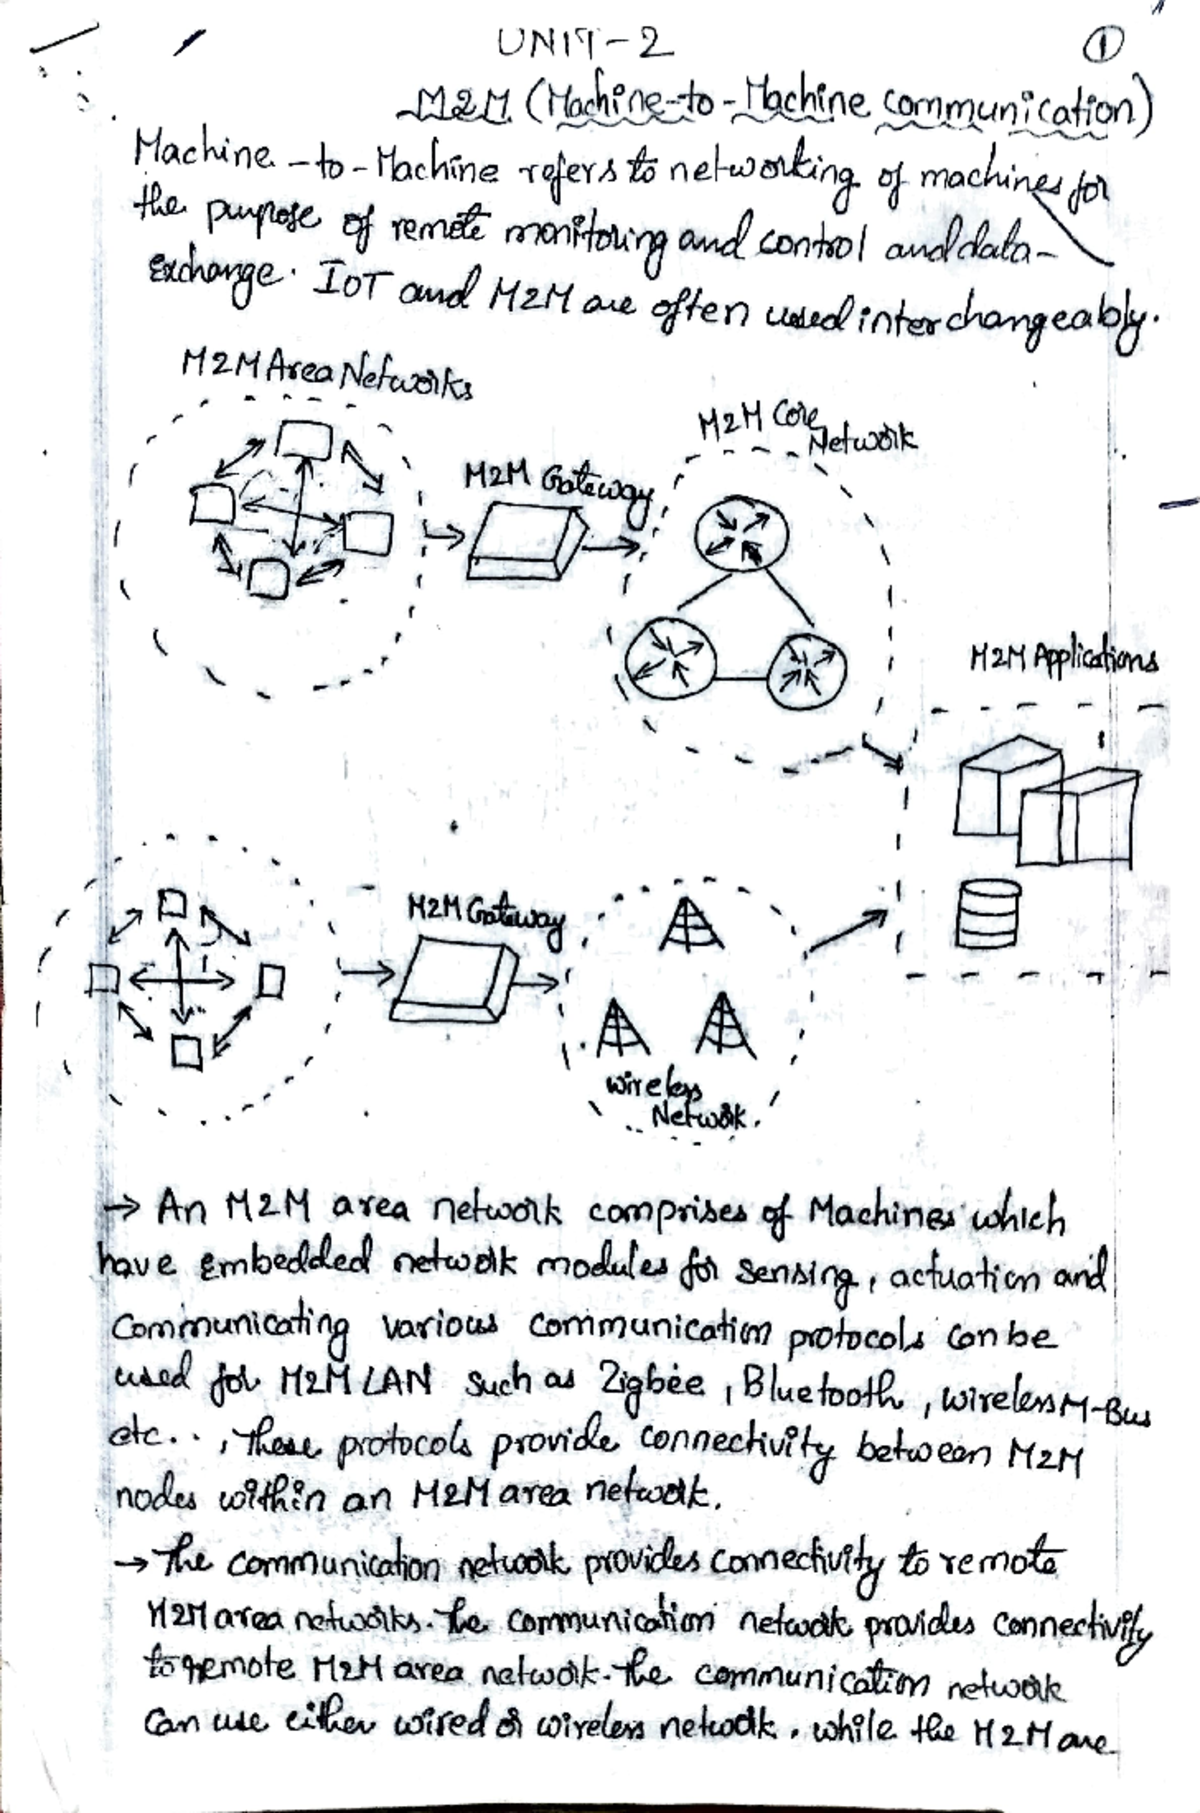 UNIT-2
①
M2M (Machine-to-Machine communication)
Machine-to-Machine refers to networking of machines for
the purpose of remote monitoring and control and data-
Exchange. IoT and M2M are often used interchangeably.
M2M Area Networks
M2M Core
Network
M2M Gateway
M2M Applications
M2M Gateway
wireless
Network.
→ An M2M area network comprises of Machines which
have Embedded network modules for sensing, actuation and
communicating various communication protocols can be
used for M2M LAN such as Zigbee, Bluetooth, wireless M-Bus
etc.., these protocols provide connectivity between M2M
nodes within an M2M area network.
→ The communication network provides connectivity to remote
M2M area networks. The communication network provides connectivity
to remote M2M area network. The communication network
can use either wired or wireless network. while the M2M are